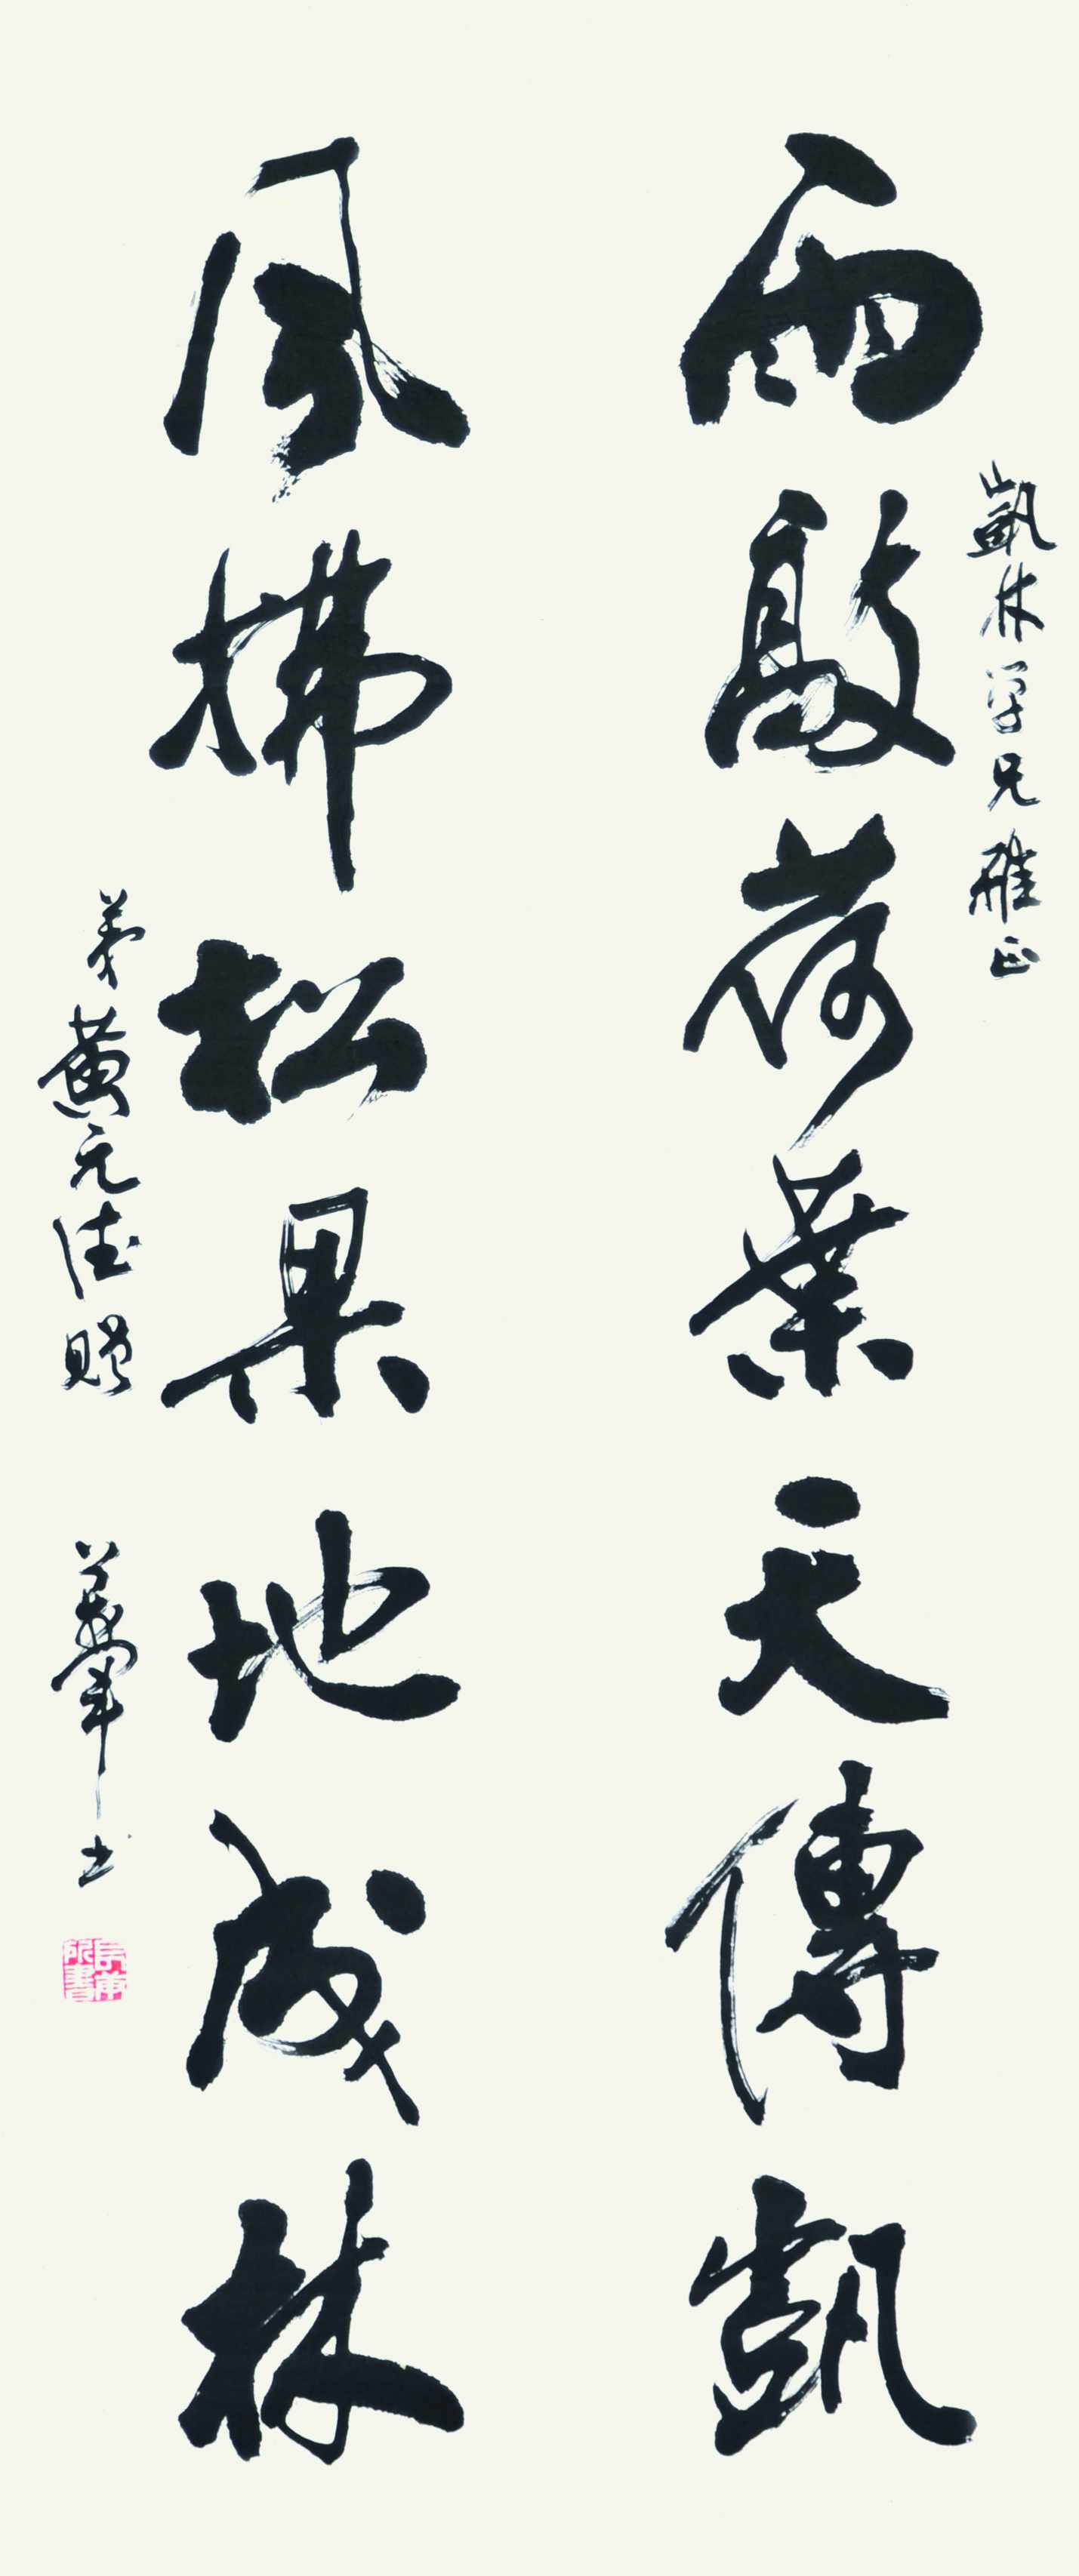 凱林学兄雅正
雨敲荷葉天傳凱
風拂松果地成林
弟黄元德赠
書